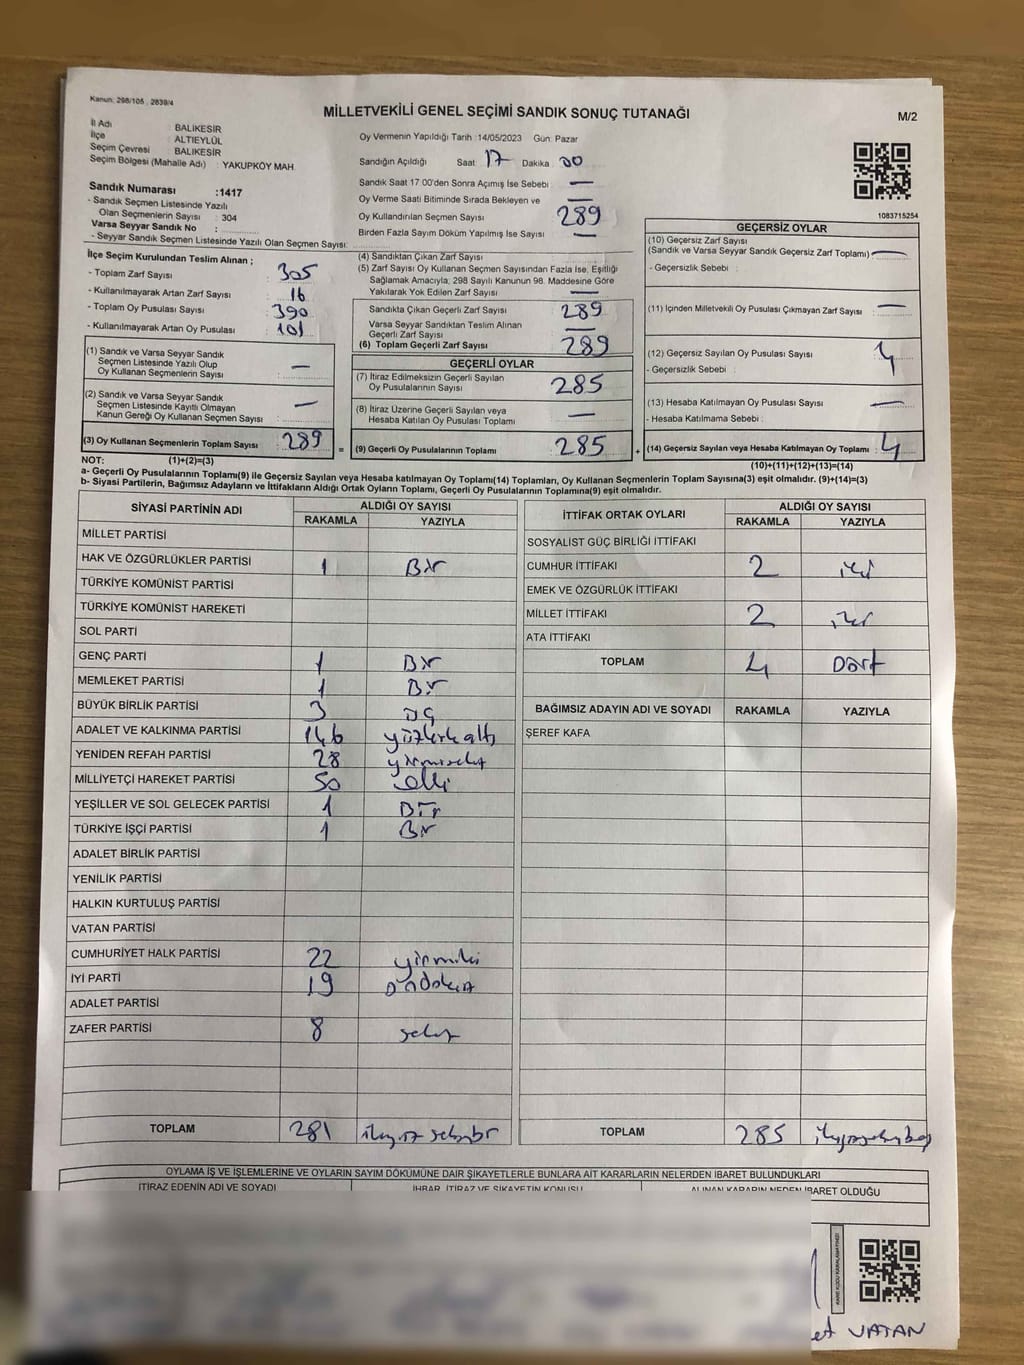 Kanun: 298/105 , 2839/4
MİLLETVEKİLİ GENEL SEÇİMİ SANDIK SONUÇ TUTANAĞI
M/2
İl Adı : BALIKESİR
İlçe : ALTIEYLÜL
Seçim Çevresi : BALIKESİR
Seçim Bölgesi (Mahalle Adı) : YAKUPKÖY MAH.
Sandık Numarası :1417
- Sandık Seçmen Listesinde Yazılı
Olan Seçmenlerin Sayısı : 304
Varsa Seyyar Sandık No :
- Seyyar Sandık Seçmen Listesinde Yazılı Olan Seçmen Sayısı:
Oy Vermenin Yapıldığı Tarih :14/05/2023 Gün: Pazar
Sandığın Açıldığı Saat: 17 Dakika: 00
Sandık Saat 17:00'den Sonra Açımış İse Sebebi : —
Oy Verme Saati Bitiminde Sırada Bekleyen ve
Oy Kullandırılan Seçmen Sayısı : 289
Birden Fazla Sayım Döküm Yapılmış İse Sayısı : —
1083715254
İlçe Seçim Kurulundan Teslim Alınan ;
- Toplam Zarf Sayısı : 305
- Kullanılmayarak Artan Zarf Sayısı : 16
- Toplam Oy Pusulası Sayısı : 390
- Kullanılmayarak Artan Oy Pusulası : 101
(1) Sandık ve Varsa Seyyar Sandık
Seçmen Listesinde Yazılı Olup
Oy Kullanan Seçmenlerin Sayısı : —
(2) Sandık ve Varsa Seyyar Sandık
Seçmen Listesinde Kayıtlı Olmayan
Kanun Gereği Oy Kullanan Seçmen Sayısı : —
(3) Oy Kullanan Seçmenlerin Toplam Sayısı : 289
=
(4) Sandıktan Çıkan Zarf Sayısı :
(5) Zarf Sayısı Oy Kullanan Seçmen Sayısından Fazla İse, Eşitliği
Sağlamak Amacıyla, 298 Sayılı Kanunun 98. Maddesine Göre
Yakılarak Yok Edilen Zarf Sayısı : —
Sandıkta Çıkan Geçerli Zarf Sayısı : 289
Varsa Seyyar Sandıktan Teslim Alınan
Geçerli Zarf Sayısı : —
(6) Toplam Geçerli Zarf Sayısı : 289
GEÇERLİ OYLAR
(7) İtiraz Edilmeksizin Geçerli Sayılan
Oy Pusulalarının Sayısı : 285
(8) İtiraz Üzerine Geçerli Sayılan veya
Hesaba Katılan Oy Pusulası Toplamı : —
(9) Geçerli Oy Pusulalarının Toplamı : 285
+
GEÇERSİZ OYLAR
(10) Geçersiz Zarf Sayısı
(Sandık ve Varsa Seyyar Sandık Geçersiz Zarf Toplamı) : —
- Geçersizlik Sebebi :
(11) İçinden Milletvekili Oy Pusulası Çıkmayan Zarf Sayısı : —
(12) Geçersiz Sayılan Oy Pusulası Sayısı : 4
- Geçersizlik Sebebi :
(13) Hesaba Katılmayan Oy Pusulası Sayısı : —
- Hesaba Katılmama Sebebi :
(14) Geçersiz Sayılan veya Hesaba Katılmayan Oy Toplamı : 4
NOT: (1)+(2)=(3)
(10)+(11)+(12)+(13)=(14)
a- Geçerli Oy Pusulalarının Toplamı(9) ile Geçersiz Sayılan veya Hesaba katılmayan Oy Toplamı(14) Toplamları, Oy Kullanan Seçmenlerin Toplam Sayısına(3) eşit olmalıdır. (9)+(14)=(3)
b- Siyasi Partilerin, Bağımsız Adayların ve İttifakların Aldığı Ortak Oyların Toplamı, Geçerli Oy Pusulalarının Toplamına(9) eşit olmalıdır.
SİYASİ PARTİNİN ADI
ALDIĞI OY SAYISI
RAKAMLA YAZIYLA
MİLLET PARTİSİ
HAK VE ÖZGÜRLÜKLER PARTİSİ 1 Bir
TÜRKİYE KOMÜNİST PARTİSİ
TÜRKİYE KOMÜNİST HAREKETİ
SOL PARTİ
GENÇ PARTİ 1 Bir
MEMLEKET PARTİSİ 1 Bir
BÜYÜK BİRLİK PARTİSİ 3 üç
ADALET VE KALKINMA PARTİSİ 146 yüzkırkaltı
YENİDEN REFAH PARTİSİ 28 yirmisekiz
MİLLİYETÇİ HAREKET PARTİSİ 50 elli
YEŞİLLER VE SOL GELECEK PARTİSİ 1 Bir
TÜRKİYE İŞÇİ PARTİSİ 1 Bir
ADALET BİRLİK PARTİSİ
YENİLİK PARTİSİ
HALKIN KURTULUŞ PARTİSİ
VATAN PARTİSİ
CUMHURİYET HALK PARTİSİ 22 yirmiiki
İYİ PARTİ 19 ondokuz
ADALET PARTİSİ
ZAFER PARTİSİ 8 sekiz
TOPLAM 281 ikiyüz seksenbir
İTTİFAK ORTAK OYLARI
ALDIĞI OY SAYISI
RAKAMLA YAZIYLA
SOSYALİST GÜÇ BİRLİĞİ İTTİFAKI
CUMHUR İTTİFAKI 2 iki
EMEK VE ÖZGÜRLÜK İTTİFAKI
MİLLET İTTİFAKI 2 iki
ATA İTTİFAKI
TOPLAM 4 Dört
BAĞIMSIZ ADAYIN ADI VE SOYADI RAKAMLA YAZIYLA
ŞEREF KAFA
TOPLAM 285 ikiyüzseksenbeş
OYLAMA İŞ VE İŞLEMLERİNE VE OYLARIN SAYIM DÖKÜMÜNE DAİR ŞİKAYETLERLE BUNLARA AİT KARARLARIN NELERDEN İBARET BULUNDUKLARI
İTİRAZ EDENİN ADI VE SOYADI İHBAR, İTİRAZ VE ŞİKAYETİN KONUSU ALINAN KARARIN NEDEN İBARET OLDUĞU
VATAN